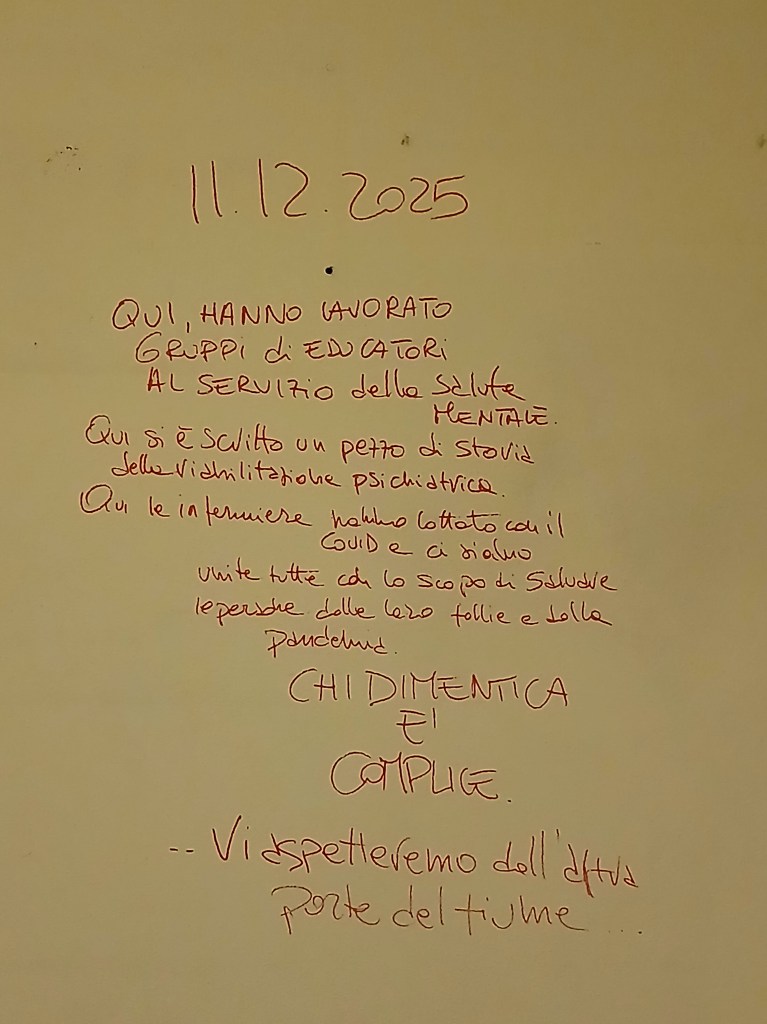 11.12.2025
QUI, HANNO LAVORATO
GRUPPI di EDUCATORI
AL SERVIZIO della Salute
MENTALE.
Qui si è scritto un pezzo di storia
della riabilitazione psichiatrica.
Qui le infermiere hanno lottato con il
COVID e ci siamo
unite tutte con lo scopo di salvare
le persone dalle loro follie e dalla
pandemia.
CHI DIMENTICA
E'
COMPLICE.
-- Vi aspetteremo dall'altra
parte del fiume ...